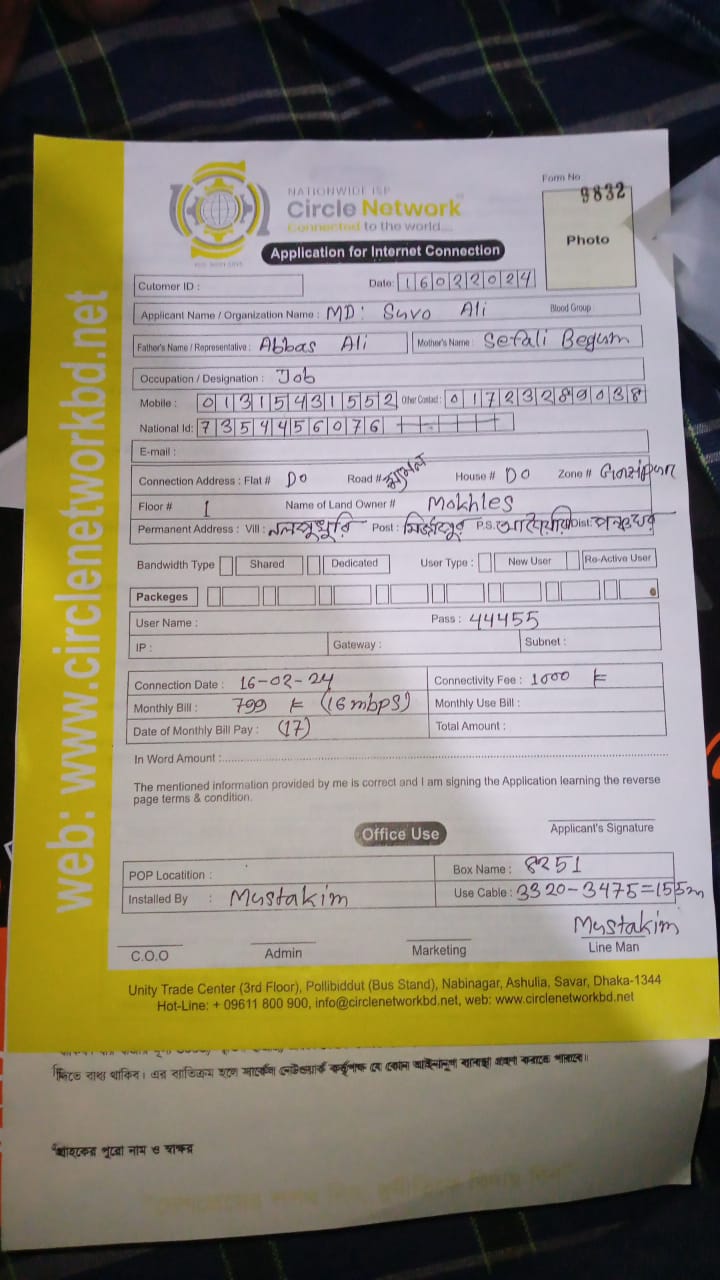 Form No
9832
NATIONWIDE ISP
Circle Network
Connected to the world....
Photo
Application for Internet Connection
Cutomer ID :
Date: 16022024
Applicant Name / Organization Name : MD: Suvo Ali Blood Group :
Father's Name / Representative : Abbas Ali Mother's Name : Sefali Begum
Occupation / Designation : Job
Mobile : 01315431552 Other Contact : 01723289038
National Id: 7354456076
E-mail :
Connection Address : Flat # DO Road # House # DO Zone # Gazipur
Floor # 1 Name of Land Owner # Mokhles
Permanent Address : Vill : Post : মির্জাপুর P.S. Dist:
Bandwidth Type Shared Dedicated User Type : New User Re-Active User
Packeges
User Name : Pass : 44455
IP : Gateway : Subnet :
Connection Date : 16-02-24 Connectivity Fee : 1000 ৳
Monthly Bill : 799 ৳ (16 mbps) Monthly Use Bill :
Date of Monthly Bill Pay : (17) Total Amount :
In Word Amount :
The mentioned information provided by me is correct and I am signing the Application learning the reverse
page terms & condition.
Applicant's Signature
Office Use
POP Locatition : Box Name : 8251
Installed By : Mustakim Use Cable : 3320-3475=155m
Mustakim
C.O.O Admin Marketing Line Man
Unity Trade Center (3rd Floor), Pollibiddut (Bus Stand), Nabinagar, Ashulia, Savar, Dhaka-1344
Hot-Line: + 09611 800 900, info@circlenetworkbd.net, web: www.circlenetworkbd.net
web: www.circlenetworkbd.net
দিতে বাধ্য থাকিব। এর ব্যতিক্রম হলে সার্কেল নেটওয়ার্ক কর্তৃপক্ষ যে কোন আইনানুগ ব্যবস্থা গ্রহণ করতে পারবে।
গ্রাহকের পুরো নাম ও স্বাক্ষর